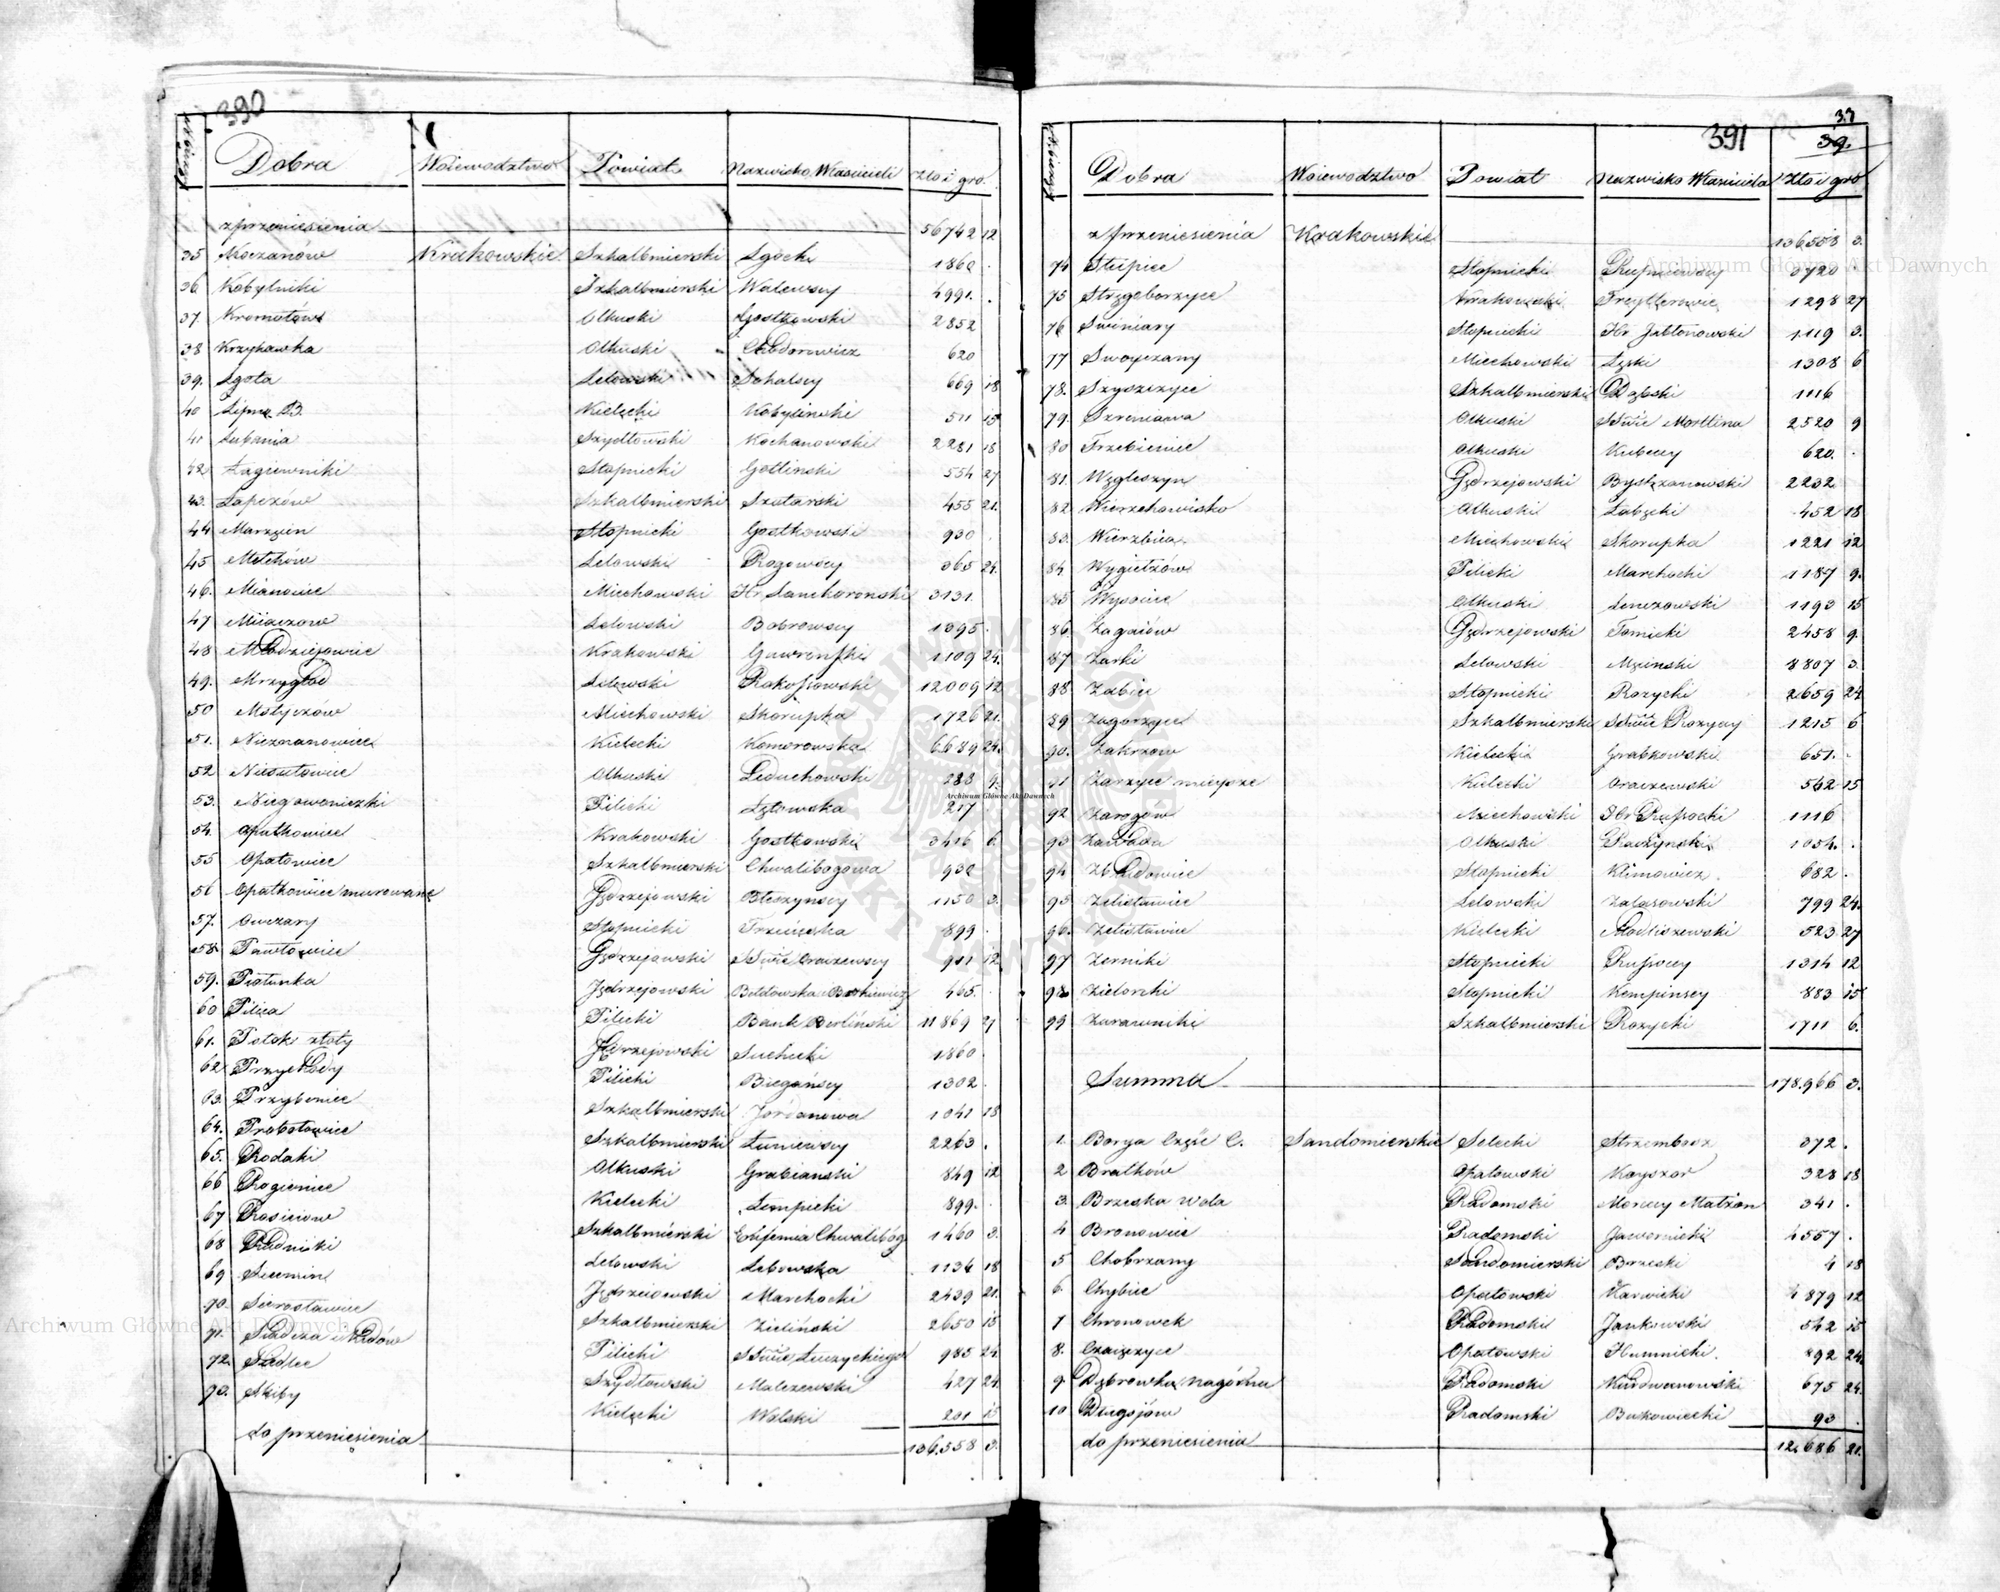 390
N. bieżący Dobra Województwo Powiat Nazwisko Właścicieli złoi gro.
z przeniesienia 56742 12
35 Moczanów Krakowskie Szkalbmierski Zgocki 1860 .
36 Kobylniki Szkalbmierski Walewscy 4991. .
37. Kromołów Olkuski Gostkowski 2852
38 Krzykawka Olkuski Chodorowicz 620
39. Lgota Lelowski Sokalscy 669 18
40 Lipna B. Kielecki Kobyliński 511 15
41 Lubania Szydłowski Kochanowski 2281 18
42 Łagiewniki Stopnicki Gołliński 554 27
43. Łapszów Szkalbmierski Szatarski 455 21.
44 Marzęcin Stopnicki Gostkowski 930
45 Mełchów Lelowski Rogowscy 865 24.
46. Mianowice Miechowski Hr. Lanckoroński 3131.
47 Mijaczow Lelowski Bobrowscy 1395.
48 Młodziejowice Krakowski Gawroński 1109 24.
49. Mrzygłod Lelowski Rakoszowski 12009 12
50 Motyczów Miechowski Skorupka 1726 21.
51. Nieznanowice Kielecki Komorowska 6689 24.
52 Niesułowice Olkuski Leduchowski 288 9.
53. Niegowoniczki Pilicki Łętowska 217
54. Opatkowice Krakowski Gostkowski 3416 6.
55 Opatowiec Szkalbmierski Chwalibogowa 930
56 Opatkowice murowane Jędrzejowski Bleszyńscy 1150 3.
57. Owczary Stopnicki Trzcińska 899 .
58. Pawłowice Jędrzejowski SSwie Oraczewscy 911 12
59. Piotunka Jędrzejowski 465.
60 Pilica Pilicki Bank Berliński 11869 27
61. Potok złoty Jędrzejowski Suchecki 1860
62 Przychody Pilicki Biegańscy 1302 .
63. Przybenice Szkalbmierski Jordanowa 1041 18
64. Probołowice Szkalbmierski Łuniewscy 2263 .
65. Rodaki Olkuski Grabianski 849 12
66 Rogienice Kielecki Łempicki 899.
67 Rosieiow Szkalbmierski Eufemia Chwalibóg 1460 3.
68 Rudniki Lelowski Lebowska 1134 18
69 Secemin Jędrzeiowski Marchocki 2439 21.
70. Sierosławice Szkalbmierski Zieliński 2650 15
71. Pilicki 985 24
72. Siedlce Szydłowski Malczewski 427 24.
73. Skiby Kielecki Wolski 201 15
do przeniesienia 136.558 3.
391
37
39.
N. bieżący Dobra Województwo Powiat Nazwisko Właściciela Złoi gro
z przeniesienia Krakowskie 136558 3.
74 Słupiec Stopnicki 3720
75 Strzgeborzyce Krakowski 1298 27
76 Swiniary Stopnicki Hr. Jabłonowski 1119 3.
77 Swoyczany Miechowski Łęski 1308 6
78. Szyszczyce Szkalbmierski Dębski 1116
79. Szreniawa Olkuski SSwie Morsztina 2520 9
80 Trzebienice Olkuski Kubeccy 620. .
81. Węgleszyn Jędrzejowski Bystrzanowski 2232
82 Wierzchowisko Olkuski Łabęcki 452 18
83. Wierzbica Miechowski Skorupka 1221 12
84 Wygiełzów Pilicki Marchocki 1187 9.
85 Wysocice Olkuski Lenczowski 1193 15
86 Zagaiów Jędrzejowski Tomicki 2458 9.
87 Żarki Lelowski Męcinski 8807 3.
88 Żabiec Stopnicki Rozycki 2659 24
89 Zagorzyce Szkalbmierski SSwie Rozyccy 1215 6
90. Zakrzow Kielecki Grabkowski 651. .
91 Zarzyce mieysze Kielecki Oraczewski 542 15
92 Zarogów Miechowski 1116
93 Zawada Olkuski Raczynski 1054. .
94 Zbludowice Stopnicki Klimowicz. 682 .
95 Zelisławice Lelowski Załasowski 799 24.
96. Zelisławice Kielecki Modliszewski 523 27
97 Zerniki Stopnicki 1314 12
98 Zielonki Stopnicki Kempinscy 883 15
99 Zurawniki Szkalbmierski Rozycki 1711 6.
Summa 178.966 3.
1. Borya Część C. Sandomierskie Solecki Strzembosz 372 .
2 Bratków Opatowski Kayszar 328 18
3. Brzeska Wola Radomski 341 .
4 Bronowice Radomski Jawornicki 4557 .
5 Chobrzany Sandomierski Brzeski 4 18
6. Chybice Opatowski Karwicki 4879 12
7 Chronowek Radomski Jankowski 542 15
8. Czaięczyce Opatowski Humnicki. 892 24.
9 Dąbrowka nagórna Radomski 675 24.
10 Długojów Radomski Bukowiecki 93 .
do przeniesienia 12.686 21.
Archiwum Główne Akt Dawnych
Archiwum Główne Akt Dawnych
Archiwum Główne Akt Dawnych
ARCHIWUM GŁÓWNE AKT DAWNYCH